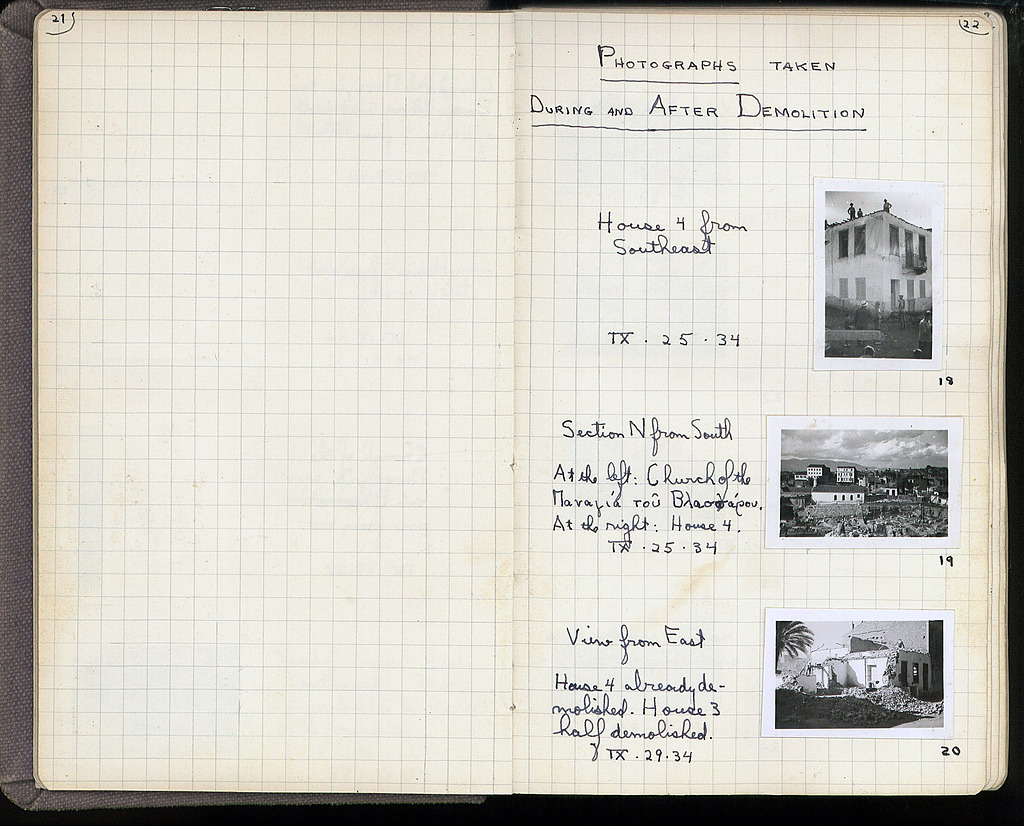 21
22
PHOTOGRAPHS TAKEN
DURING AND AFTER DEMOLITION
House 4 from
Southeast
IX . 25 . 34
18
Section N from South
At the left: Church of the
Παναγιά τοῦ Βλασσάρου.
At the right: House 4.
IX . 25 . 34
19
View from East
House 4 already de-
molished. House 3
half demolished.
IX . 29 . 34
20